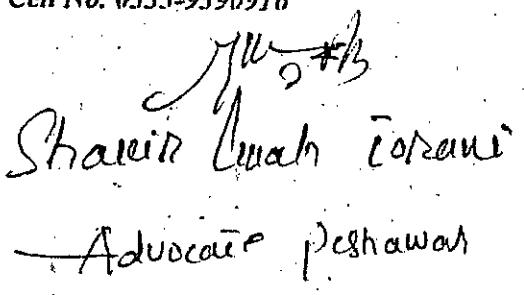 Cell No. 0333-9390916
Shakir Ullah Torani
Advocate Peshawar